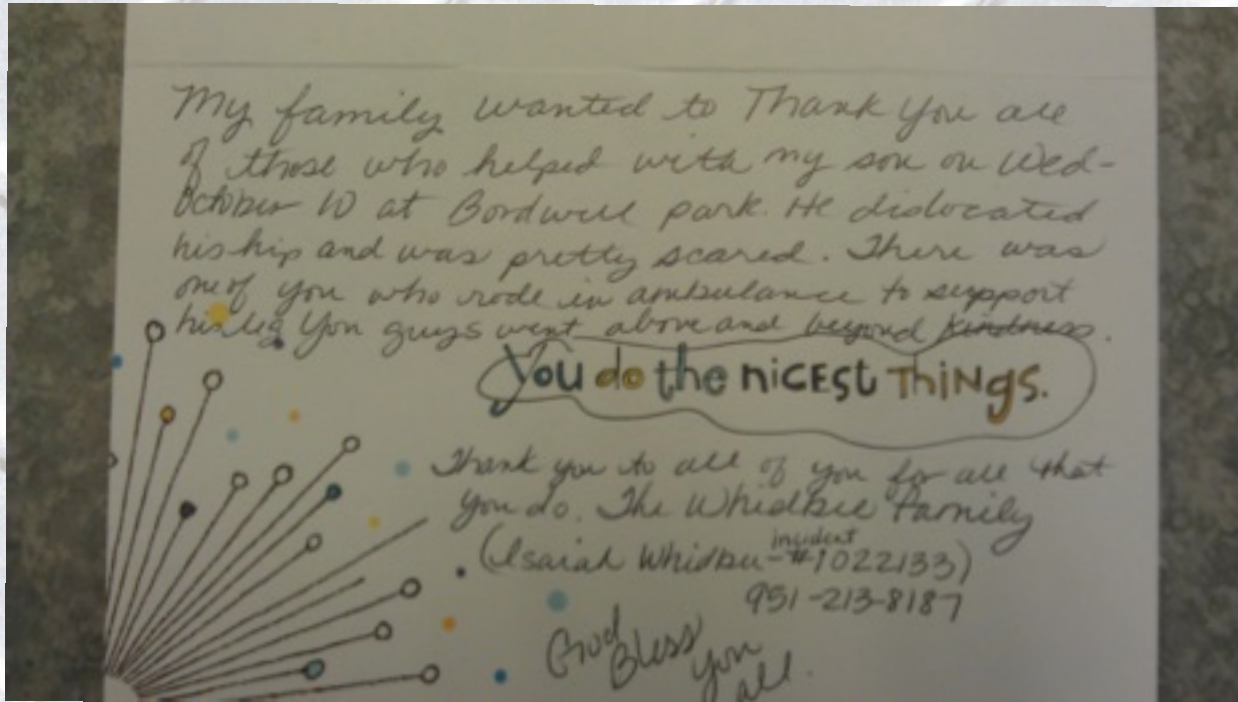 My family wanted to Thank You all
of those who helped with my son on Wed-
October 10 at Bordwell park. He dislocated
his hip and was pretty scared. There was
one of you who rode in ambulance to support
his leg You guys went above and beyond kindness.
You do the nicest things.
Thank you to all of you for all that
you do. The Whidbee Family
(Isaiah Whidbee - incident #1022133)
951-213-8187
God
Bless
You
all.